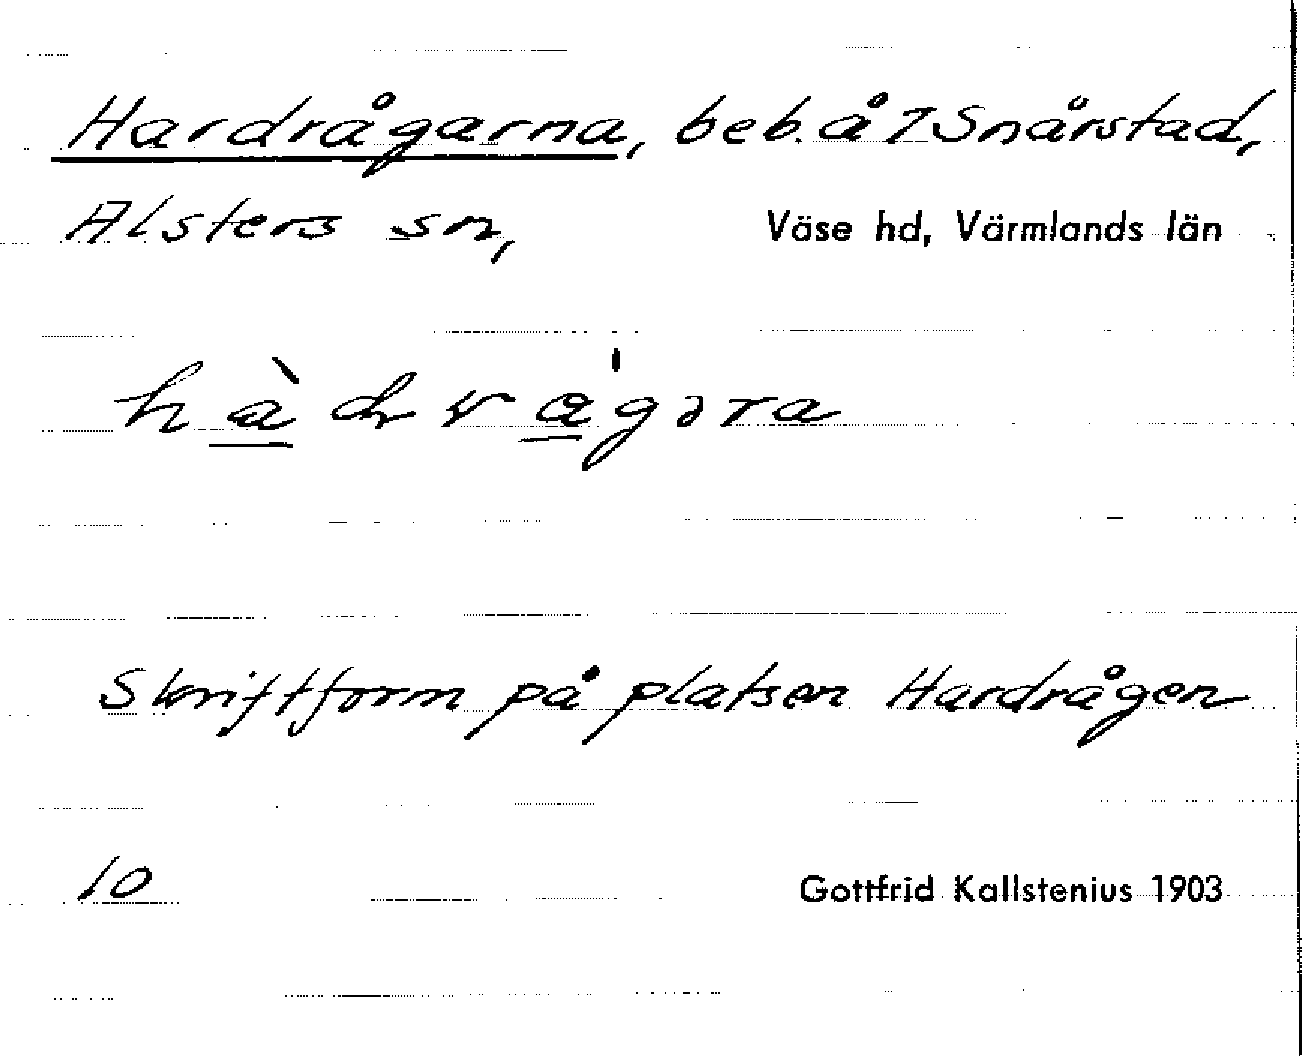 Hardrågarna, beb. å 7 Snårstad,
Alsters sn, Väse hd, Värmlands län
Skriftform på platsen Hardrågen
10 Gottfrid Kallstenius 1903